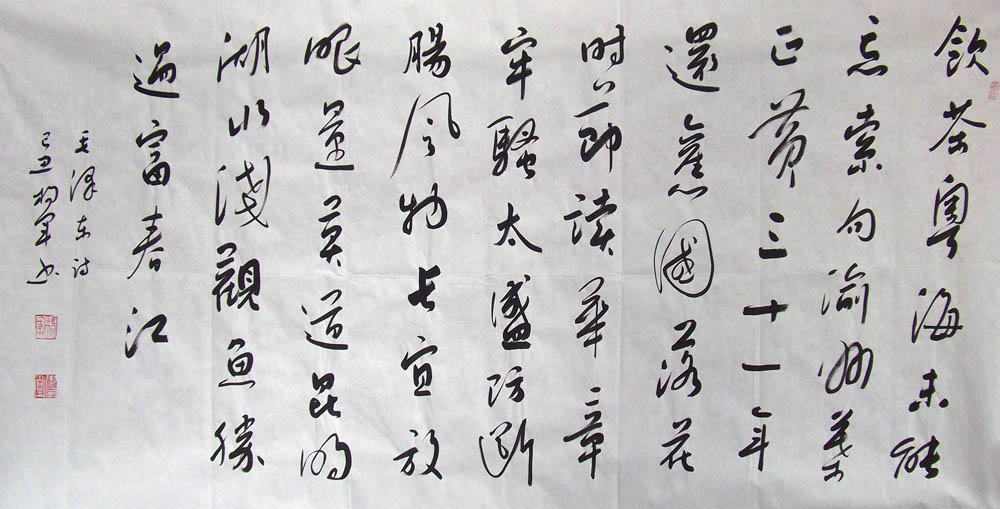 飲茶粤海未能
忘索句渝州葉
正黄三十一年
還舊國落花
时節读華章
牢騷太盛防断
腸风物長宜放
眼量莫道昆明
湖水淺觀魚勝
過富春江
毛泽东诗
己丑 书